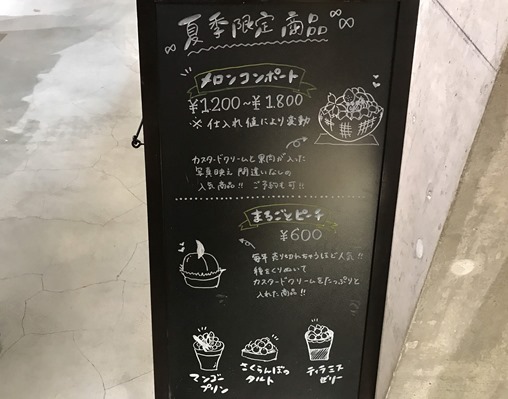 夏季限定商品
メロンコンポート
¥1,200~¥1,800
※仕入れ値により変動
カスタードクリームと果肉が入った
写真映え間違いなしの
人気商品!! ご予約も可!!
まるごとピーチ
¥600
毎年売り切れちゃうほど人気!!
種をくりぬいて
カスタードクリームをたっぷりと
入れた商品!!
マンゴー
プリン
さくらんぼの
タルト
ティラミス
ゼリー